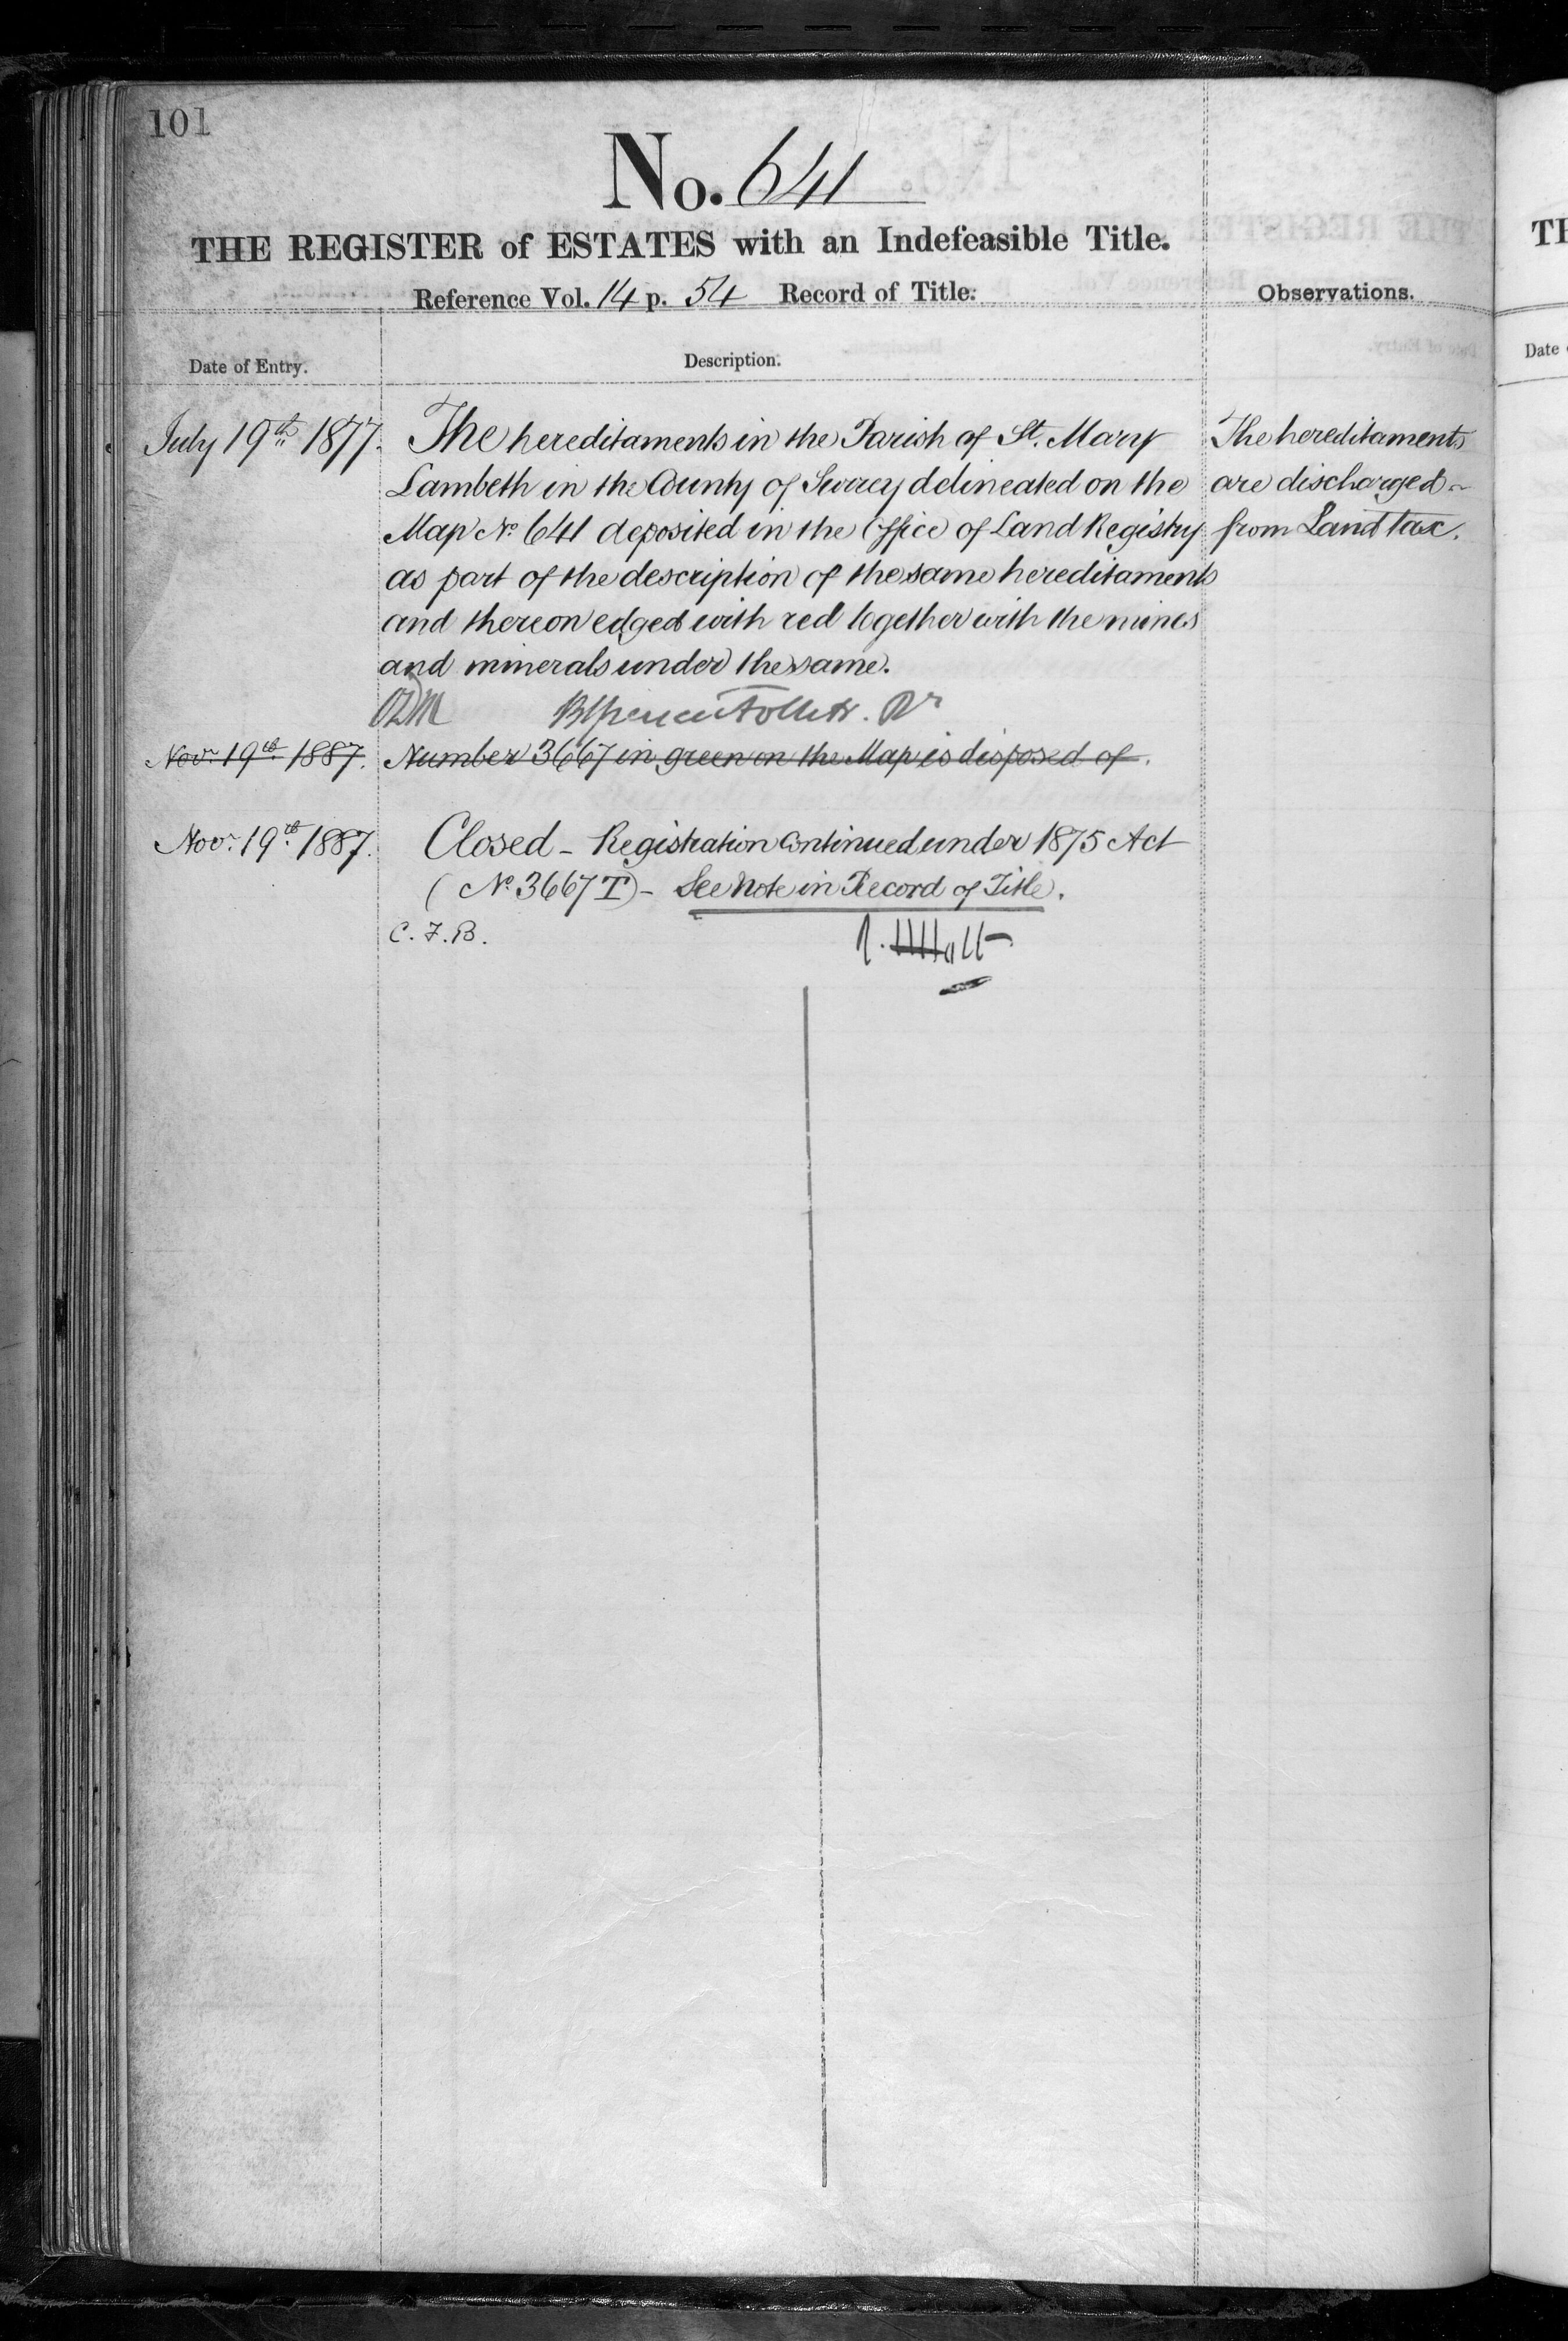 101
No. 641
THE REGISTER of ESTATES with an Indefeasible Title.
Reference Vol. 14 p. 54 Record of Title.
Observations.
Date of Entry.
Description.
July 19th 1877.
The hereditaments in the Parish of St. Mary
Lambeth in the County of Surrey delineated on the
Map No. 641 deposited in the Office of Land Registry
as part of the description of the same hereditaments
and thereon edged with red together with the mines
and minerals under the same.
The hereditaments
are discharged
from Land tax.
Nov. 19th 1887. Number 3667 in green on the Map is disposed of.
Nov. 19th 1887. Closed - Registration Continued under 1875 Act
(No. 3667 T) - See Note in Record of Title.
C. F. B.
TH
Date